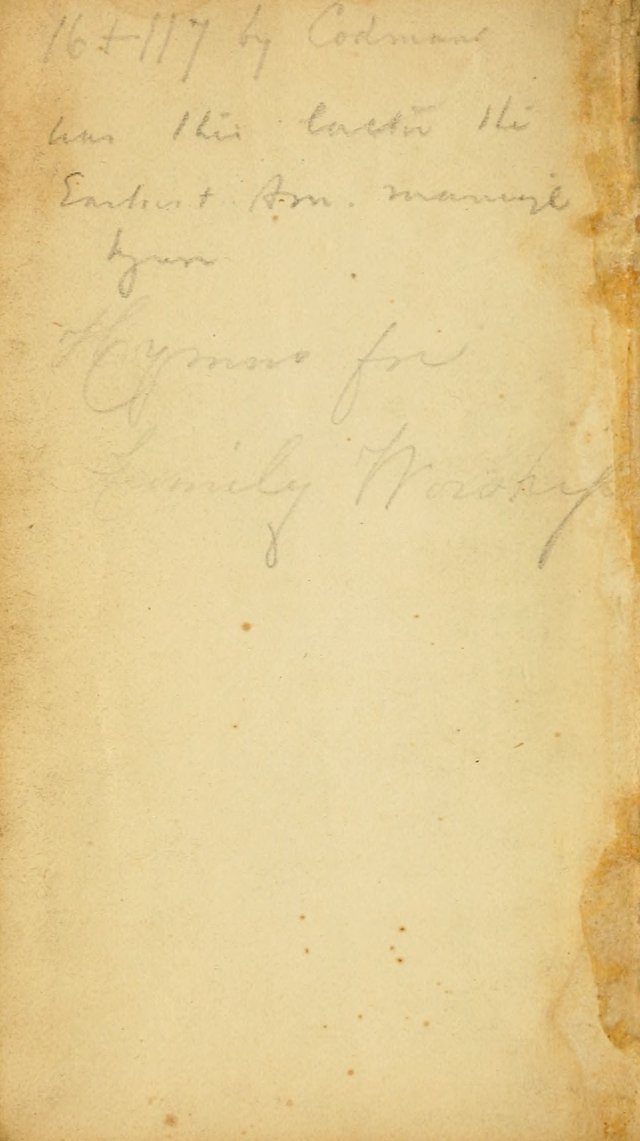 16 + 117 by Codman
was this latter the
Earliest Am. marriage
hymn
Hymns for
Family Worship